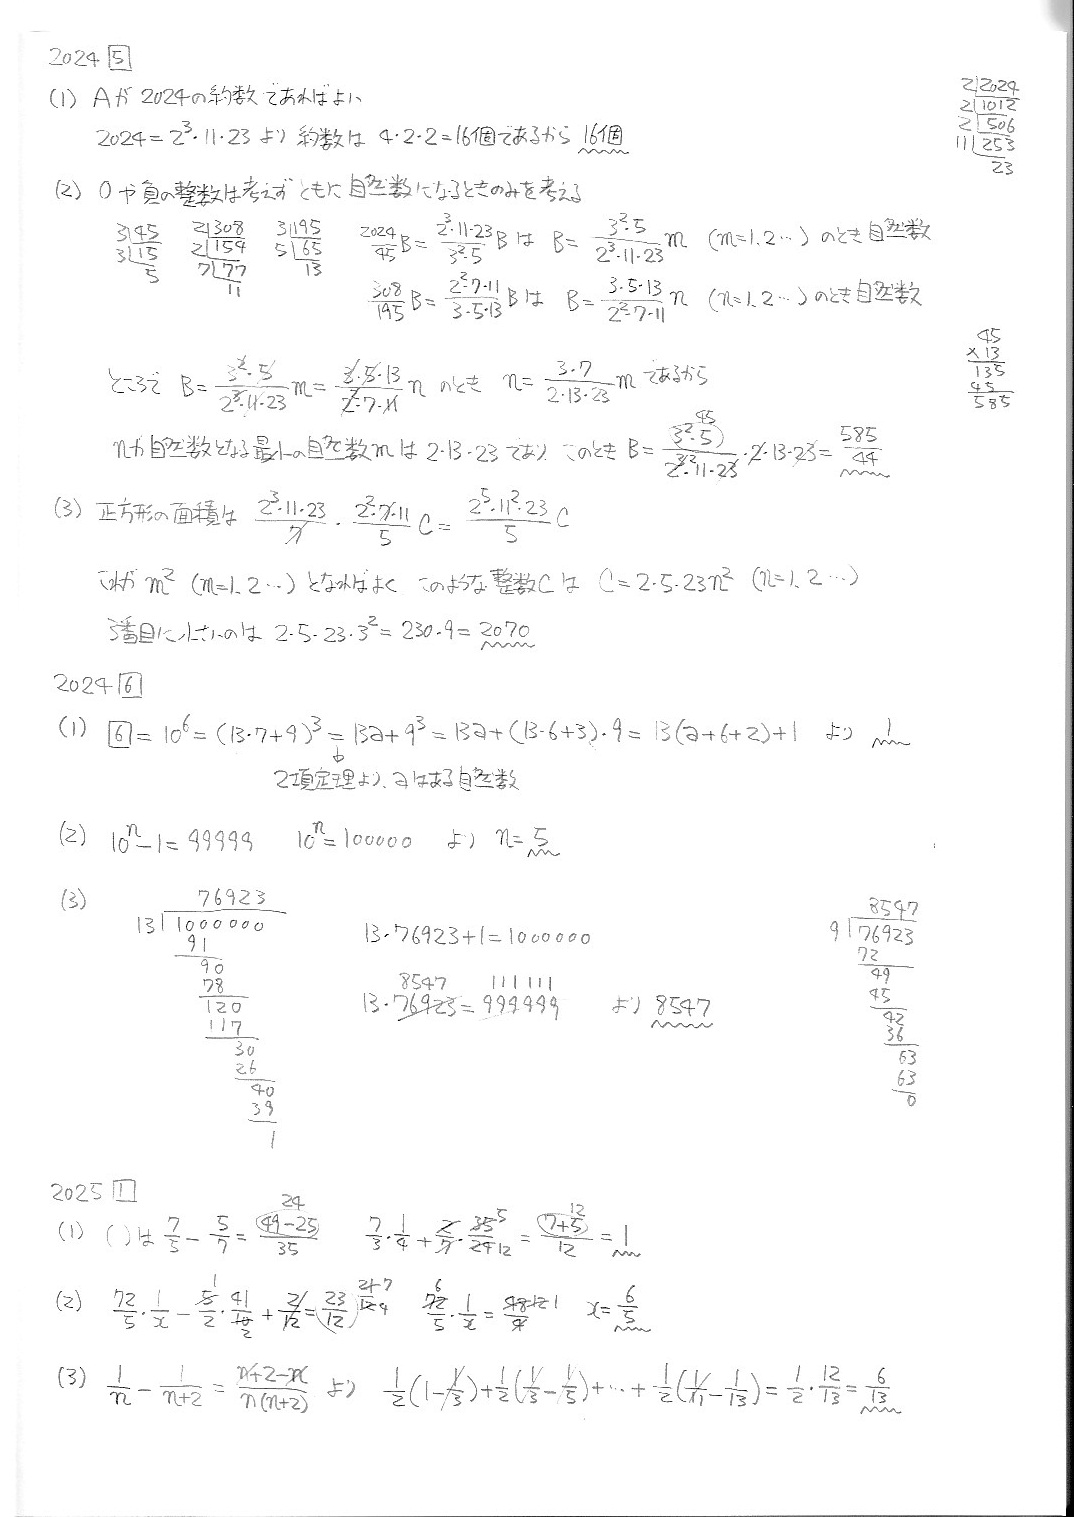 2024 5
(1) Aが2024の約数であればよい
2024=2³・11・23より 約数は 4・2・2=16個であるから 16個
2)2024
2)1012
2)506
11)253
23
(2) 0や負の整数は考えず ともに自然数になるときのみを考える
3)45
3)15
5
2)308
2)154
7)77
11
3)195
5)65
13
2024/45 B = 2³・11・23/3²・5 B は B = 3²・5/2³・11・23 m (m=1,2…) のとき自然数
308/195 B = 2²・7・11/3・5・13 B は B = 3・5・13/2²・7・11 n (n=1,2…) のとき自然数
45
×13
135
45
585
ところで B = 3²・5/2³・11・23 m = 3・5・13/2²・7・11 n のとき n = 3・7/2・13・23 m であるから
nが自然数となる最小の自然数mは 2・13・23であり このとき B = 3²・5/2³・11・23・2・13・23 = 585/44
45
2
(3) 正方形の面積は 2³・11・23/7・2²・7・11/5 C = 2⁵・11²・23/5 C
これが m² (m=1,2…) となればよく このような整数Cは C=2・5・23n² (n=1,2…)
3番目に小さいのは 2・5・23・3²=230・9=2070
2024 6
(1) 6=10⁶=(13・7+9)³=13a+9³=13a+(13・6+3)・9=13(a+6+2)+1 より 1
2項定理より、aはある自然数
(2) 10ⁿ-1=99999 10ⁿ=100000 より n=5
(3)
76923
13)1000000
91
90
78
120
117
30
26
40
39
1
13・76923+1=1000000
8547 111111
13・76923=999999 より 8547
8547
9)76923
72
49
45
42
36
63
63
0
2025 1
(1) ( )は 7/5 - 5/7 = 49-25/35 7/3・1/4 + 2/7・35/24 = 7+5/12 = 1
24
5
12
12
(2) 72/5・1/x - 5/2・41/10 + 2/12 = 23/12 72/5・1/x = 48 12 1/4 x=6/5
1
2
21 7
12 4
6
(3) 1/n - 1/n+2 = n+2-n/n(n+2) より 1/2(1-1/3)+1/2(1/3-1/5)+…+1/2(1/11-1/13)=1/2・12/13=6/13